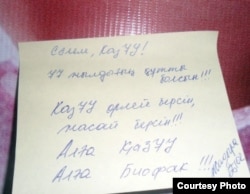 Сәлем, ҚазҰУ!
77 жылдығың құтты
болсын!!!
ҚазҰУ өрлей берсін,
жасай берсін!!!
Алға ҚазҰУ
Алға Биофак !!!
Courtesy Photo